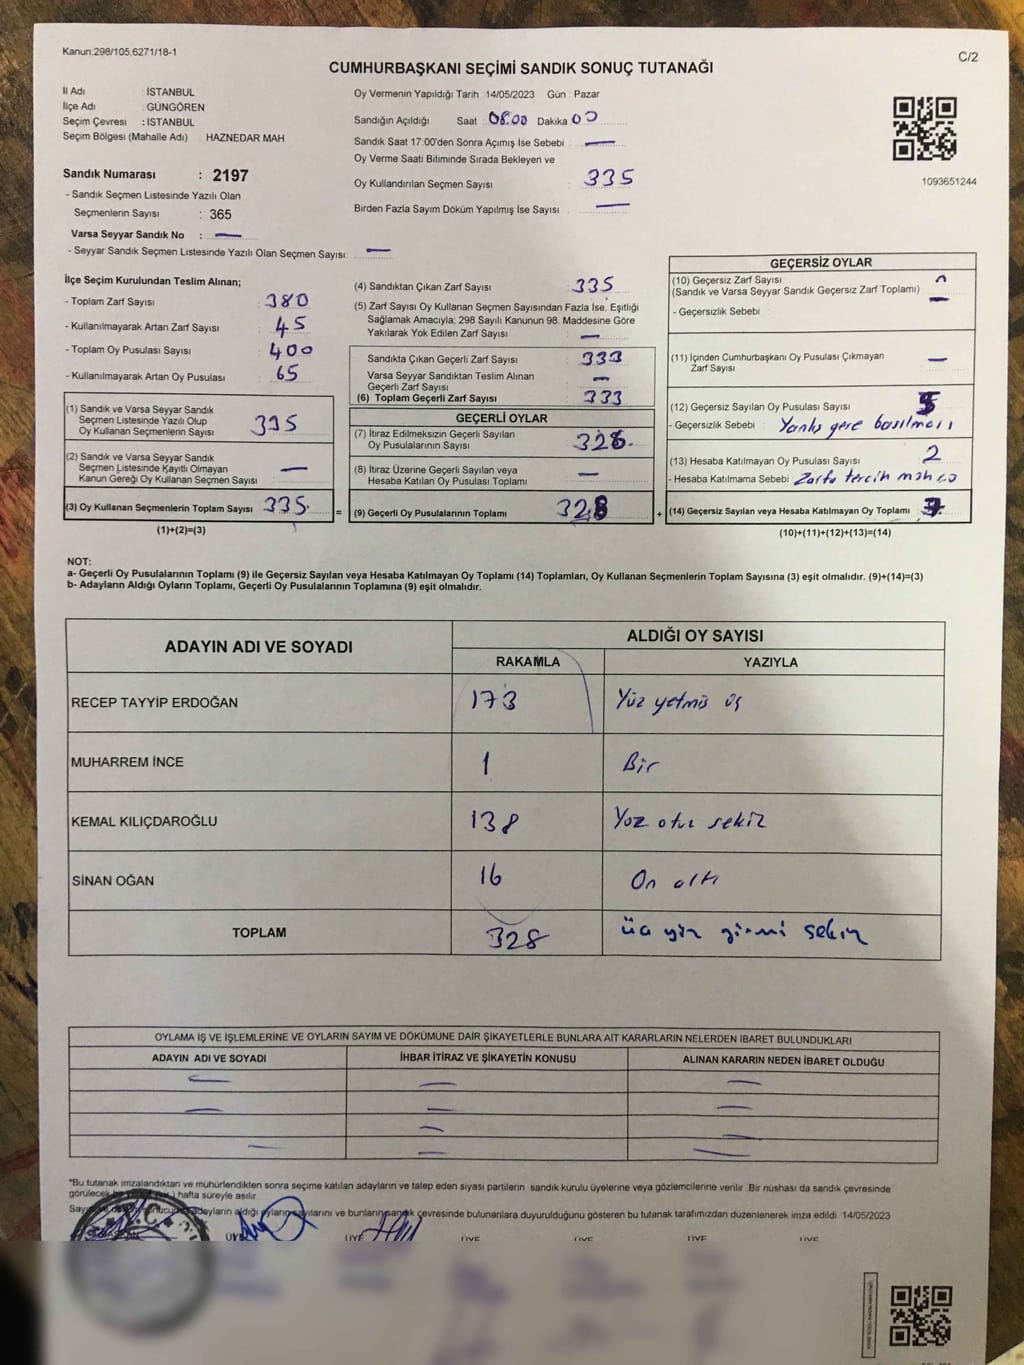 Kanun:298/105,6271/18-1
C/2
CUMHURBAŞKANI SEÇİMİ SANDIK SONUÇ TUTANAĞI
İl Adı : İSTANBUL
İlçe Adı : GÜNGÖREN
Seçim Çevresi : İSTANBUL
Seçim Bölgesi (Mahalle Adı) HAZNEDAR MAH
Sandık Numarası : 2197
- Sandık Seçmen Listesinde Yazılı Olan
Seçmenlerin Sayısı : 365
Varsa Seyyar Sandık No : —
- Seyyar Sandık Seçmen Listesinde Yazılı Olan Seçmen Sayısı: —
Oy Vermenin Yapıldığı Tarih 14/05/2023 Gün : Pazar
Sandığın Açıldığı Saat 08.00 Dakika 00
Sandık Saat 17:00'den Sonra Açımış İse Sebebi : —
Oy Verme Saati Bitiminde Sırada Bekleyen ve
Oy Kullandırılan Seçmen Sayısı : 335
Birden Fazla Sayım Döküm Yapılmış İse Sayısı : —
1093651244
İlçe Seçim Kurulundan Teslim Alınan;
- Toplam Zarf Sayısı : 380
- Kullanılmayarak Artan Zarf Sayısı : 45
- Toplam Oy Pusulası Sayısı : 400
- Kullanılmayarak Artan Oy Pusulası : 65
(1) Sandık ve Varsa Seyyar Sandık
Seçmen Listesinde Yazılı Olup
Oy Kullanan Seçmenlerin Sayısı : 335
(2) Sandık ve Varsa Seyyar Sandık
Seçmen Listesinde Kayıtlı Olmayan
Kanun Gereği Oy Kullanan Seçmen Sayısı : —
(3) Oy Kullanan Seçmenlerin Toplam Sayısı 335
(1)+(2)=(3)
=
(4) Sandıktan Çıkan Zarf Sayısı : 335
(5) Zarf Sayısı Oy Kullanan Seçmen Sayısından Fazla İse, Eşitliği
Sağlamak Amacıyla; 298 Sayılı Kanunun 98. Maddesine Göre
Yakılarak Yok Edilen Zarf Sayısı : —
Sandıkta Çıkan Geçerli Zarf Sayısı : 333
Varsa Seyyar Sandıktan Teslim Alınan
Geçerli Zarf Sayısı : —
(6) Toplam Geçerli Zarf Sayısı : 333
GEÇERLİ OYLAR
(7) İtiraz Edilmeksizin Geçerli Sayılan
Oy Pusulalarının Sayısı : 328
(8) İtiraz Üzerine Geçerli Sayılan veya
Hesaba Katılan Oy Pusulası Toplamı : —
(9) Geçerli Oy Pusulalarının Toplamı 328
+
GEÇERSİZ OYLAR
(10) Geçersiz Zarf Sayısı :
(Sandık ve Varsa Seyyar Sandık Geçersiz Zarf Toplamı) —
- Geçersizlik Sebebi :
(11) İçinden Cumhurbaşkanı Oy Pusulası Çıkmayan
Zarf Sayısı : —
(12) Geçersiz Sayılan Oy Pusulası Sayısı : 5
- Geçersizlik Sebebi : Yanlış yere basılması
(13) Hesaba Katılmayan Oy Pusulası Sayısı : 2
- Hesaba Katılmama Sebebi Zarfta tercih
(14) Geçersiz Sayılan veya Hesaba Katılmayan Oy Toplamı : 7
(10)+(11)+(12)+(13)=(14)
NOT:
a- Geçerli Oy Pusulalarının Toplamı (9) ile Geçersiz Sayılan veya Hesaba Katılmayan Oy Toplamı (14) Toplamları, Oy Kullanan Seçmenlerin Toplam Sayısına (3) eşit olmalıdır. (9)+(14)=(3)
b- Adayların Aldığı Oyların Toplamı, Geçerli Oy Pusulalarının Toplamına (9) eşit olmalıdır.
ADAYIN ADI VE SOYADI
ALDIĞI OY SAYISI
RAKAMLA YAZIYLA
RECEP TAYYİP ERDOĞAN 173 Yüz yetmiş üç
MUHARREM İNCE 1 Bir
KEMAL KILIÇDAROĞLU 138 Yüz otuz sekiz
SİNAN OĞAN 16 On altı
TOPLAM 328 üç yüz yirmi sekiz
OYLAMA İŞ VE İŞLEMLERİNE VE OYLARIN SAYIM VE DÖKÜMÜNE DAİR ŞİKAYETLERLE BUNLARA AİT KARARLARIN NELERDEN İBARET BULUNDUKLARI
ADAYIN ADI VE SOYADI İHBAR İTİRAZ VE ŞİKAYETİN KONUSU ALINAN KARARIN NEDEN İBARET OLDUĞU
— — —
— — —
— —
— — —
*Bu tutanak imzalandıktan ve mühürlendikten sonra seçime katılan adayların ve talep eden siyasi partilerin sandık kurulu üyelerine veya gözlemcilerine verilir. Bir nüshası da sandık çevresinde
görülecek bir hafta süreyle asılır.
adayların aldığı oyların sayılarını ve bunların sandık çevresinde bulunanlara duyurulduğunu gösteren bu tutanak tarafımızdan düzenlenerek imza edildi 14/05/2023
ÜYE ÜYE ÜYE ÜYE ÜYE ÜYE